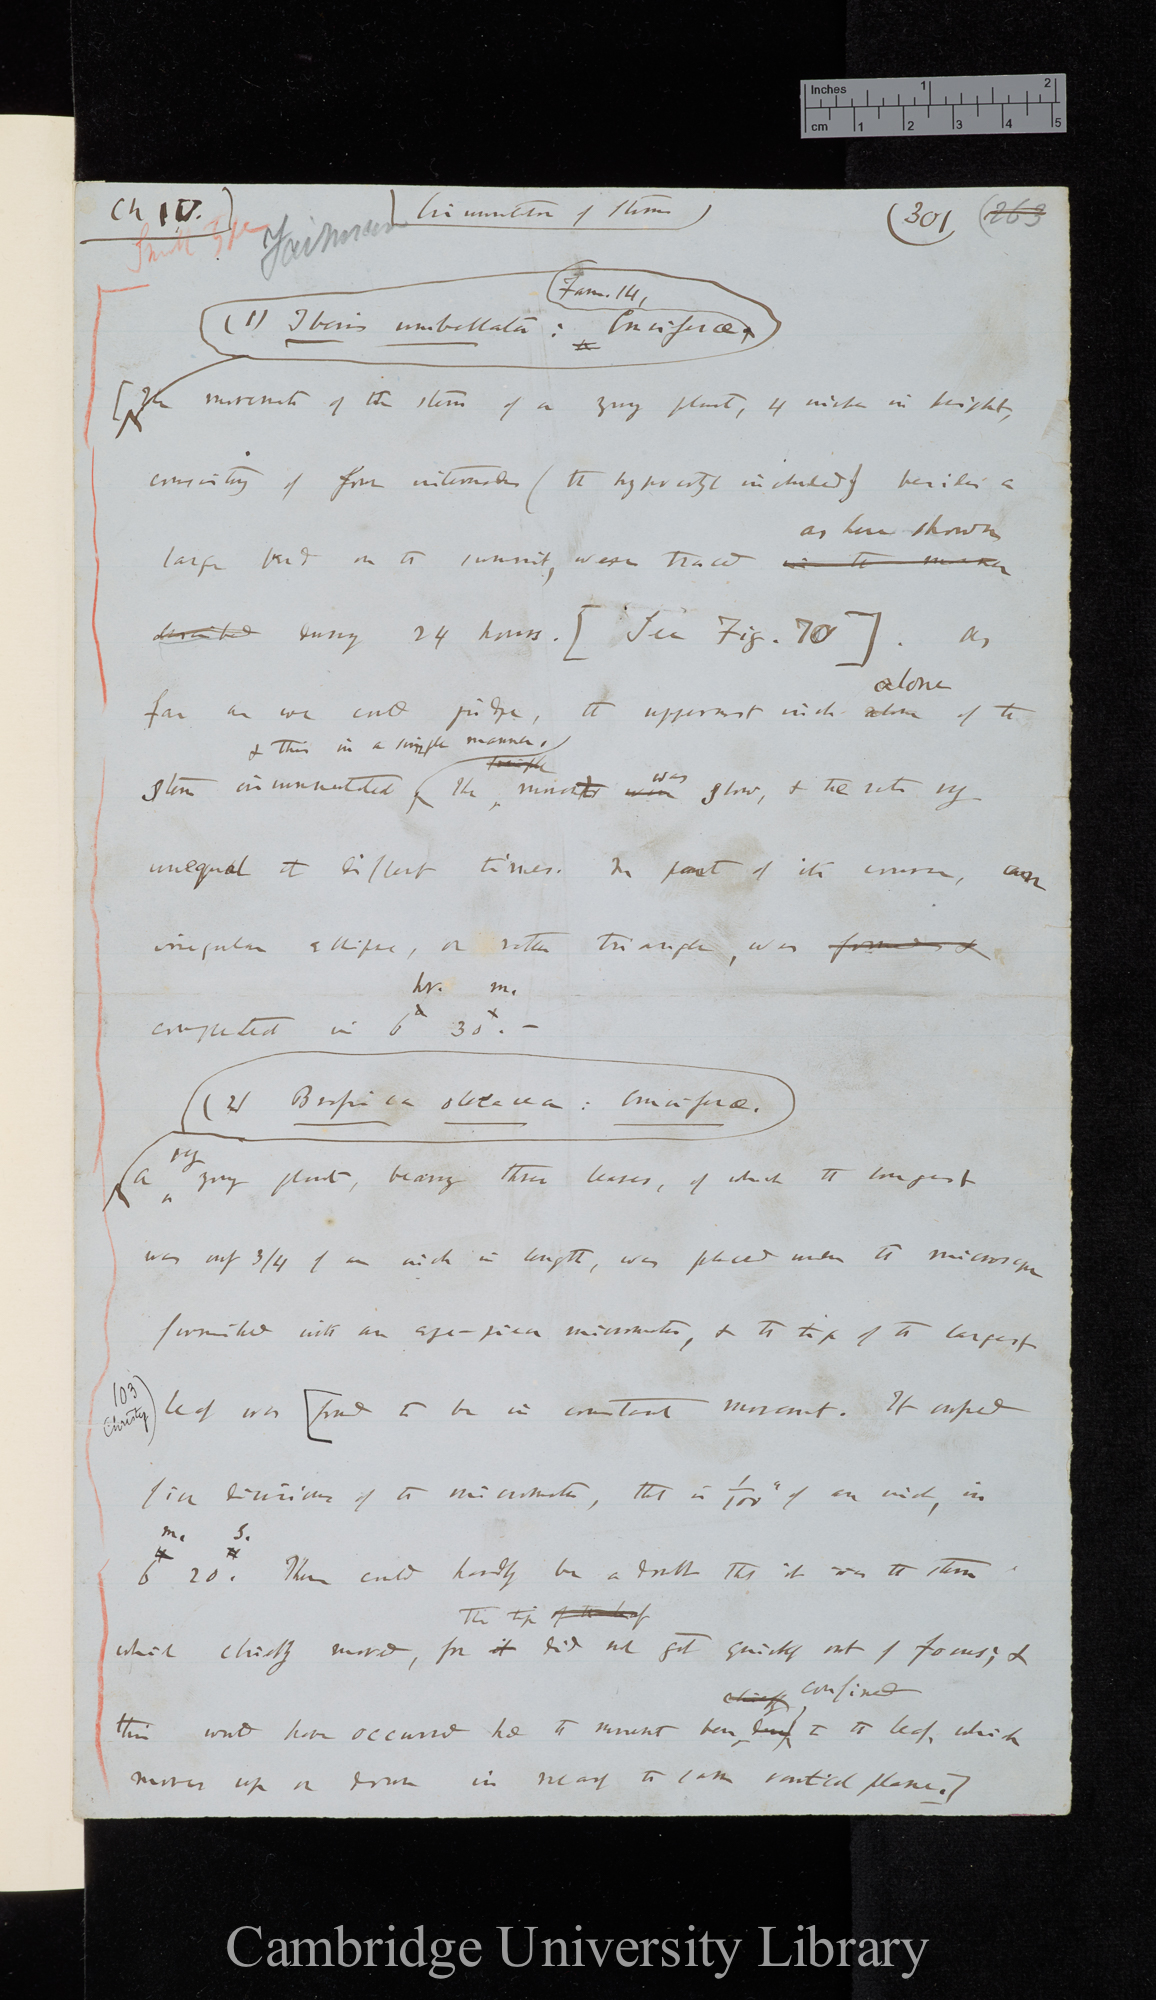 Inches 1 2
cm 1 2 3 4 5
Ch IV.) Circumnutation of Stems) (301 (263
Small Type Fairman
Fam. 14,
(1) Iberis umbellata: Cruciferæ,
[The movements of the stem of a young plant, 4 inches in height,
consisting of four internodes (the hypocotyl included) besides a
as here shown
large bud on the summit, were traced in the manner
described during 24 hours. [See Fig. 70]. As
far as we could judge, the uppermost inch alone alone of the
& this in a simple manner.
simple was
stem circumnutated The movement were slow, & the rate very
unequal at different times. In part of its course, an
irregular ellipse, or rather triangle, was formed &
hr. m.
completed in 6 30. —
(2) Brassica oleracea: Cruciferæ.
very
A young plant, bearing three leaves, of which the longest
was only 3/4 of an inch in length, was placed under the microscope
furnished with an eye-piece micrometer, & the tip of the largest
103
Christy) leaf was [found to be in constant movement. It crossed
five divisions of the micrometer, that is 1/100 of an inch, in
m. s.
6 20. There could hardly be a doubt that it was the stem
the tip of the leaf
which chiefly moved, for it did not get quickly out of focus; &
chiefly confined
this would have occurred had the movement been to the leaf, which
moves up or down in nearly the same vertical plane.]
Cambridge University Library